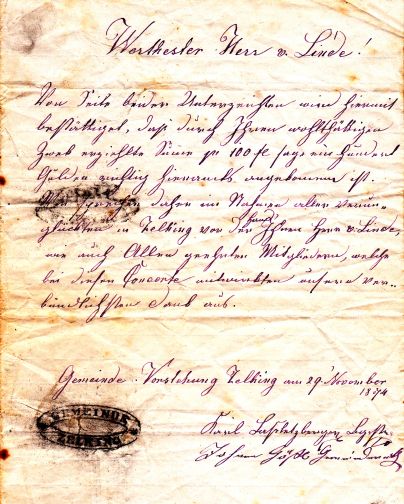 Werthester Herr v. Linde!
Von Seite beider Unterzeichten wird hiermit
bestättiget, daß durch Ihren wohlthättigen
Zweck erziehlte Sume pr 100 fl sage einhundert
Gulden richtig hieramts angekommen ist.
Wir sprechen daher im Nahmen aller Verun-
glückten in Zelking vor der Hand Ihnen Herr v. Linde,
wie auch Allen geehrten Mitgliedern, welche
bei diesen Concerte mitwirkten unsern ver-
bindlichsten Dank aus.
Gemeinde-Vorstehung Zelking am 29' November
1874
GEMEINDE
ZELKING
Karl
Johann Gemeinderath